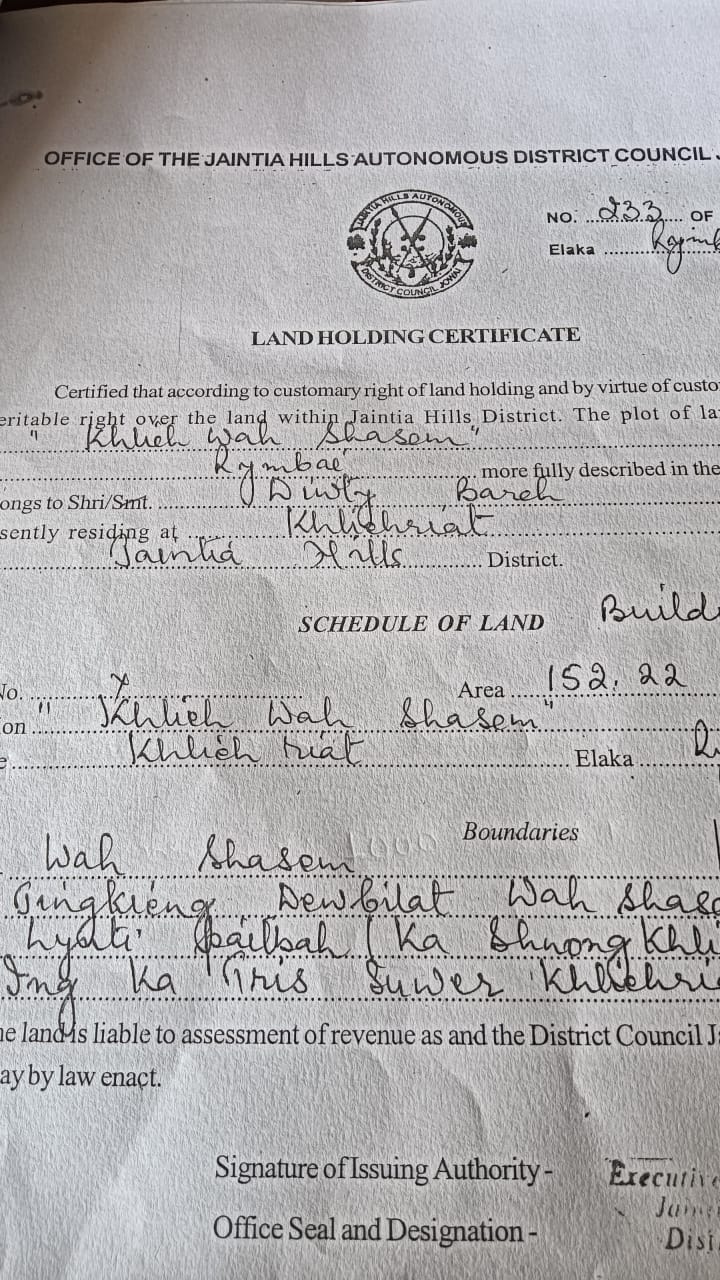 OFFICE OF THE JAINTIA HILLS AUTONOMOUS DISTRICT COUNCIL
JAINTIA HILLS AUTONOMOUS
DISTRICT COUNCIL JOWAI
NO. 233 OF
Elaka Rymb
LAND HOLDING CERTIFICATE
Certified that according to customary right of land holding and by virtue of custo
eritable right over the land within Jaintia Hills District. The plot of la
" Khlieh Wah Shasem "
Rymbai more fully described in the
ongs to Shri/Smt. Bareh
sently residing at Khliehriat
Jaintia Hills District.
SCHEDULE OF LAND Build
No. x Area 152.22
on " Khlieh Wah Shasem "
e Khlieh riat Elaka R
Boundaries
Wah Shasem
Jingkieng Dewbilat Wah Shase
Lynti Ka Shnong Khli
Ing Ka Suwer Khliehri
he land is liable to assessment of revenue as and the District Council J
ay by law enact.
Signature of Issuing Authority - Executive
Office Seal and Designation -
Jain
Dist